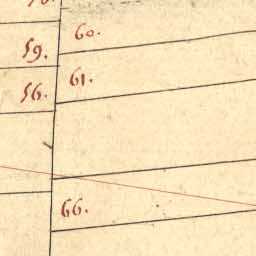 60.
59.
61.
56.
66.